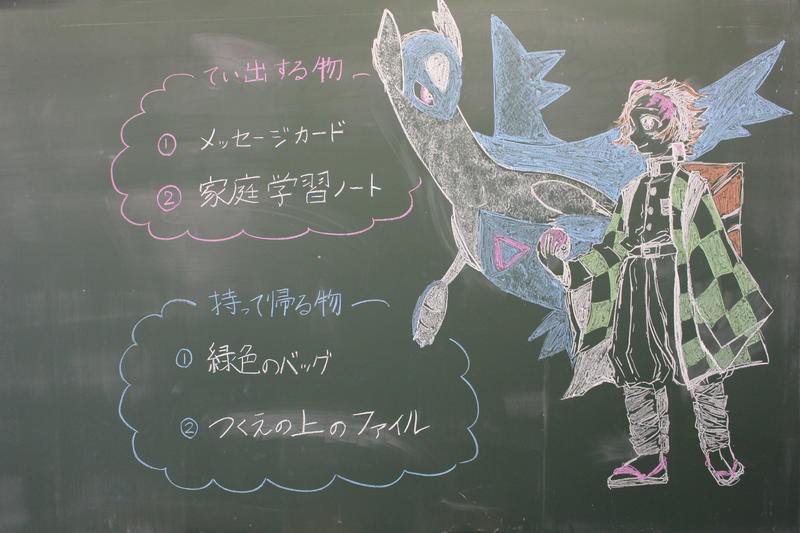 てい出する物
① メッセージカード
② 家庭学習ノート
持って帰る物
① 緑色のバッグ
② つくえの上のファイル